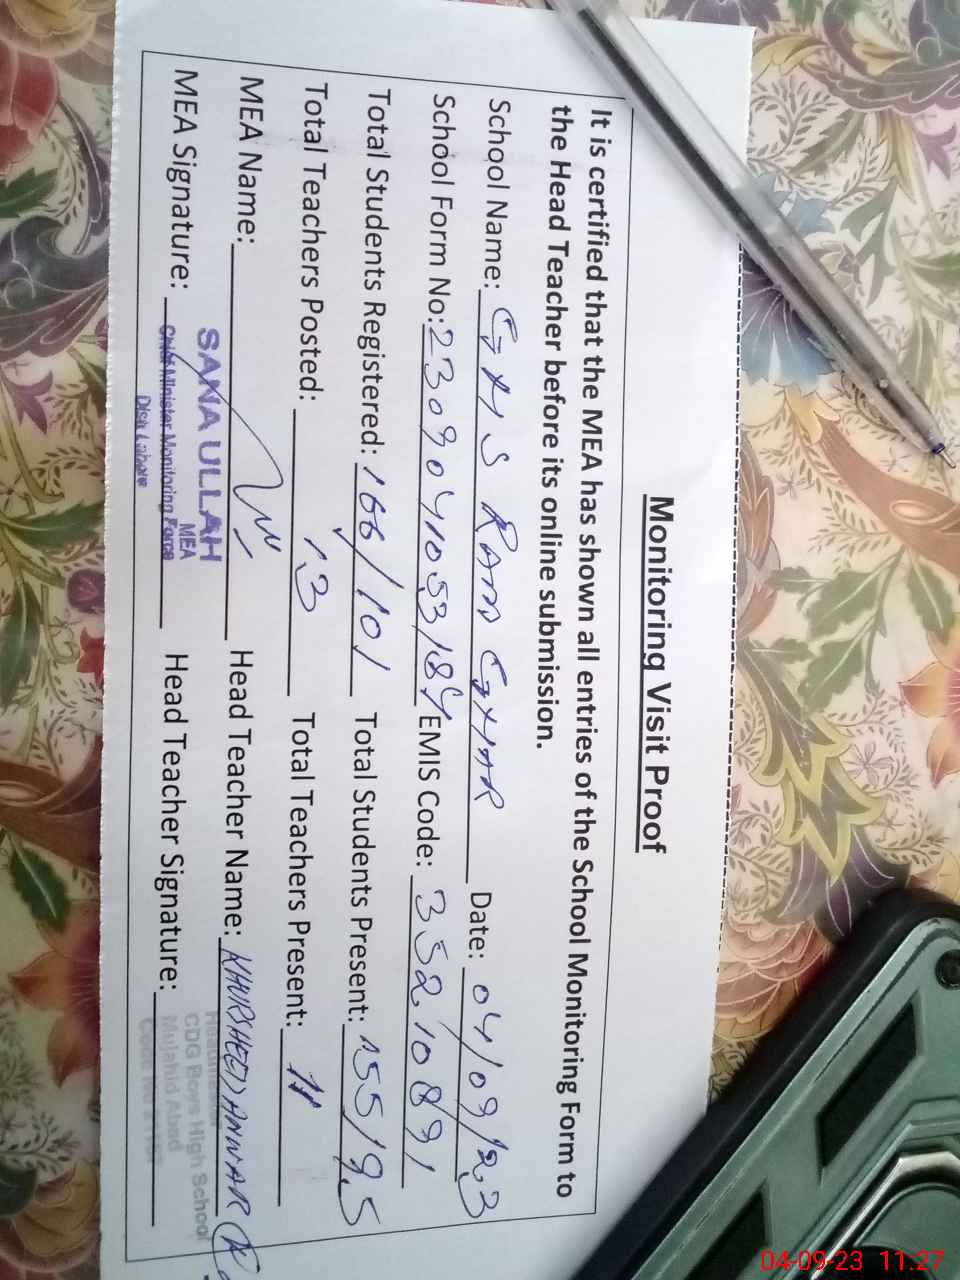 Monitoring Visit Proof
It is certified that the MEA has shown all entries of the School Monitoring Form to
the Head Teacher before its online submission.
School Name: GHS RAM GHAR Date: 04/09/23
School Form No: 2309041053/184 EMIS Code: 35210891
Total Students Registered: 166/101 Total Students Present: 155/95
Total Teachers Posted: 13 Total Teachers Present: 11
MEA Name: Head Teacher Name: KHURSHEED ANWAR
SANA ULLAH
MEA
Chief Minister Monitoring Force
Distt Lahore
MEA Signature: Head Teacher Signature:
Headmaster
CDG Boys High School
Mujahid Abad
04-09-23 11:27